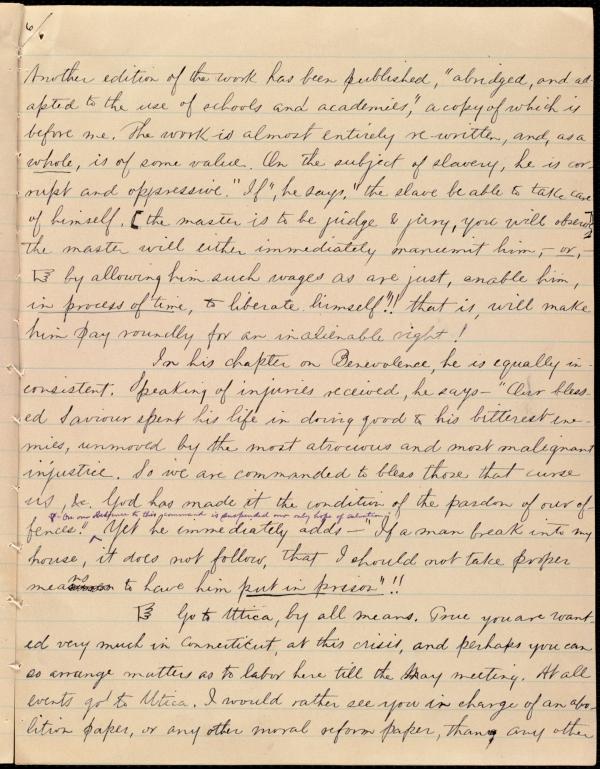 6/.
Another edition of the work has been published, "abridged, and ad-
apted to the use of schools and academies," a copy of which is
before me. The work is almost entirely re-written, and, as a
whole, is of some value. On the subject of slavery, he is cor-
rupt and oppressive. "If", he says, "the slave be able to take care
of himself, [the master is to be judge & jury, you will observe]
the master will either immediately manumit him, - or, -
by allowing him such wages as are just, enable him,
in process of time, to liberate himself"!! that is, will make
him pay roundly for an inalienable right!
In his chapter on Benevolence, he is equally in-
consistent. Speaking of injuries received, he says - "Our bless-
ed Saviour spent his life in doing good to his bitterest ene-
mies, unmoved by the most atrocious and most malignant
injustice. So we are commanded to bless those that curse
us, &c. God has made it the condition of the pardon of our of-
On our obedience to this command is suspended our only hope of salvation
fences." Yet he immediately adds - "If a man break into my
house, it does not follow, that I should not take proper
means to have him put in prison"!!
Go to Utica, by all means. True you are want-
ed very much in Connecticut, at this crisis, and perhaps you can
so arrange matters as to labor here till the May meeting. At all
events go to Utica. I would rather see you in charge of an abo-
lition paper, or any other moral reform paper, than any other